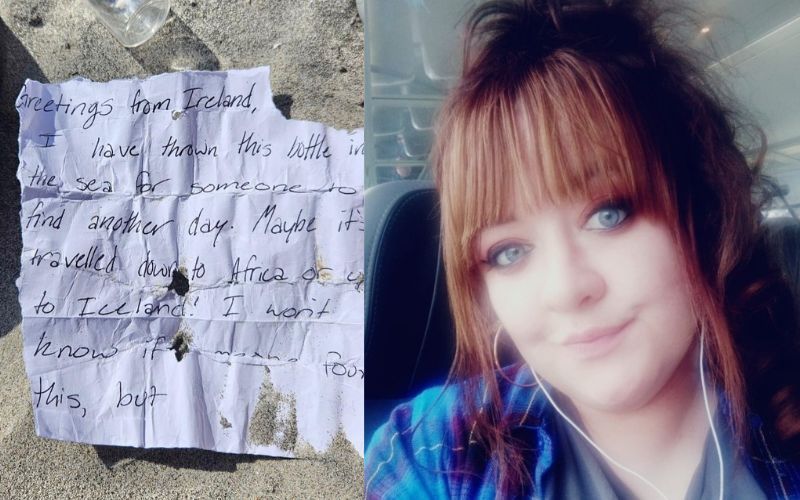 Greetings from Ireland,
I have thrown this bottle in
the sea for someone to
find another day. Maybe it's
travelled down to Africa or
to Iceland! I won't
know if
this, but